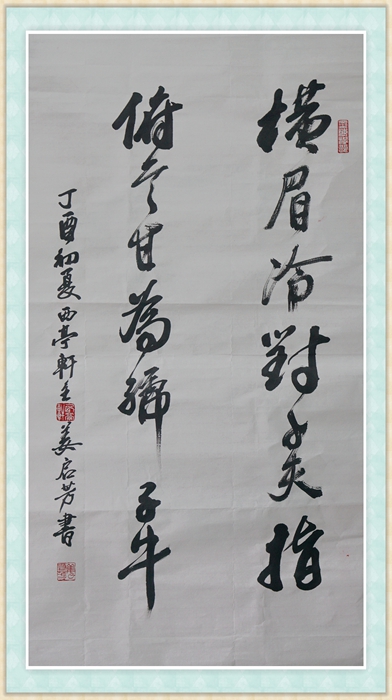 横眉冷對千夫指
俯首甘為孺子牛
丁酉初夏西亭軒主姜启芳書